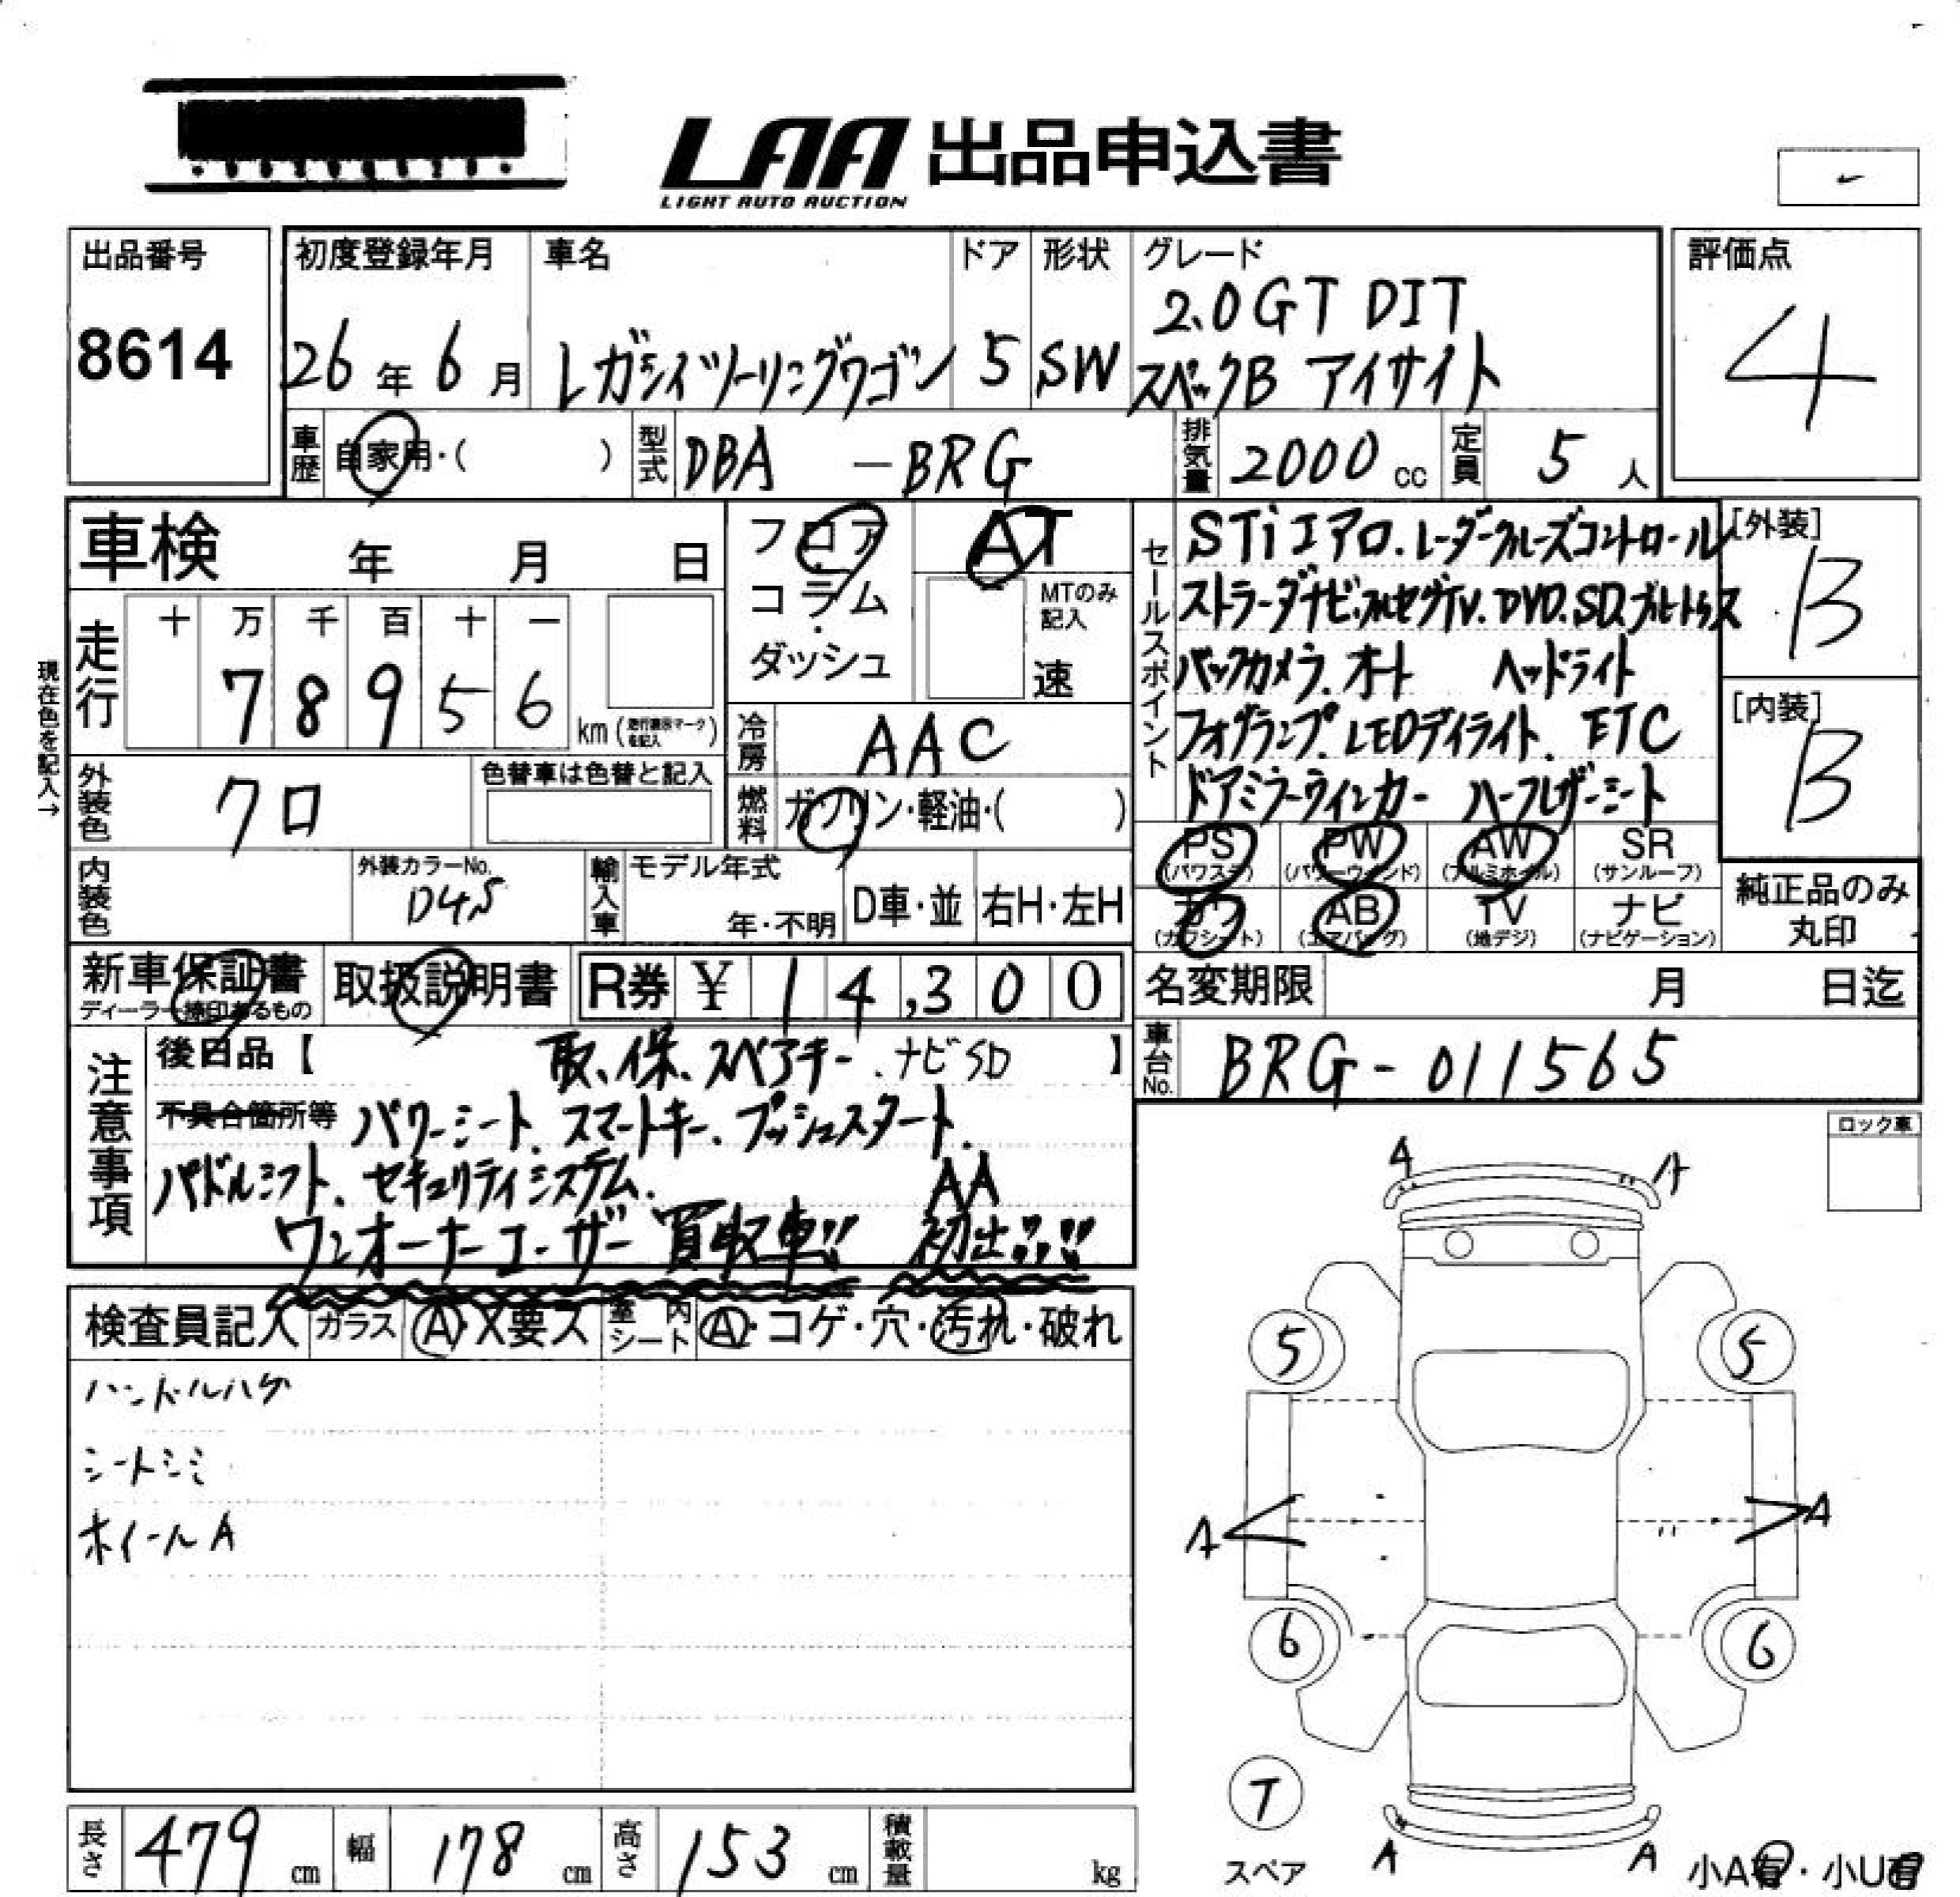 LAA 出品申込書
LIGHT AUTO AUCTION
出品番号
8614
初度登録年月
26年6月
車名
レガシイツーリングワゴン
ドア
5
形状
SW
グレード
2.0GT DIT
スペックB アイサイト
評価点
4
車歴
自家用・( )
型式
DBA -BRG
排気量
2000cc
定員
5人
車検 年 月 日
フロア
コラム
・
ダッシュ
AT
MTのみ記入
速
現在色を記入→
走行
十 万 千 百 十 一
7 8 9 5 6
km(走行表示マークを記入)
冷房
AAC
燃料
ガソリン・軽油・( )
外装色
クロ
色替車は色替と記入
内装色
外装カラーNo.
D4S
輸入車
モデル年式
年・不明
D車・並
右H・左H
セールスポイント
STiエアロ.レーダークルーズコントロール
ストラーダナビ.フルセグTV.DVD.SD.ブルートゥース
バックカメラ.オート ヘッドライト
フォグランプ.LEDデイライト.ETC
ドアミラーウィンカー ハーフレザーシート
[外装]
B
[内装]
B
PS (パワステ)
PW (パワーウィンド)
AW (アルミホイル)
SR (サンルーフ)
カワ (カワシート)
AB (エアバッグ)
TV (地デジ)
ナビ (ナビゲーション)
純正品のみ丸印
新車保証書
ディーラー捺印あるもの
取扱説明書
R券 ¥14,300
名変期限 月 日迄
車台No.
BRG-011565
注意事項
後日品【 取、保、スペアキー.ナビSD 】
不具合箇所等 パワーシート、スマートキー、プッシュスタート.
パドルシフト、セキュリティシステム.
ワンオーナーユーザー買取車!! AA初出!!!!
ロック車
検査員記入
ガラス
A・X要ス
室内シート
A・コゲ・穴・汚れ・破れ
ハンドルハゲ
シートシミ
ホイールA
A A
5 5
A A
6 6
T
スペア
A A
小A有・小U有
長さ 479cm
幅 178cm
高さ 153cm
積載量 kg